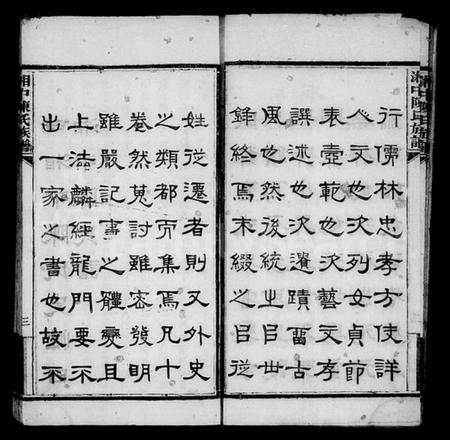 湘中陳氏族譜
行儒林忠孝方伎詳
人文也次列女貞節
表壼範也次藝文存
譔述也次遺蹟留古
風也然後統之㠯世
錄終焉末綴之㠯從
姓從遷者則又外史
之類都而集焉凡十
卷然蒐討雖密發明
雖嚴記事之體變且
上法麟經龍門要不
出一家之書也故不
湘中陳氏族譜
三